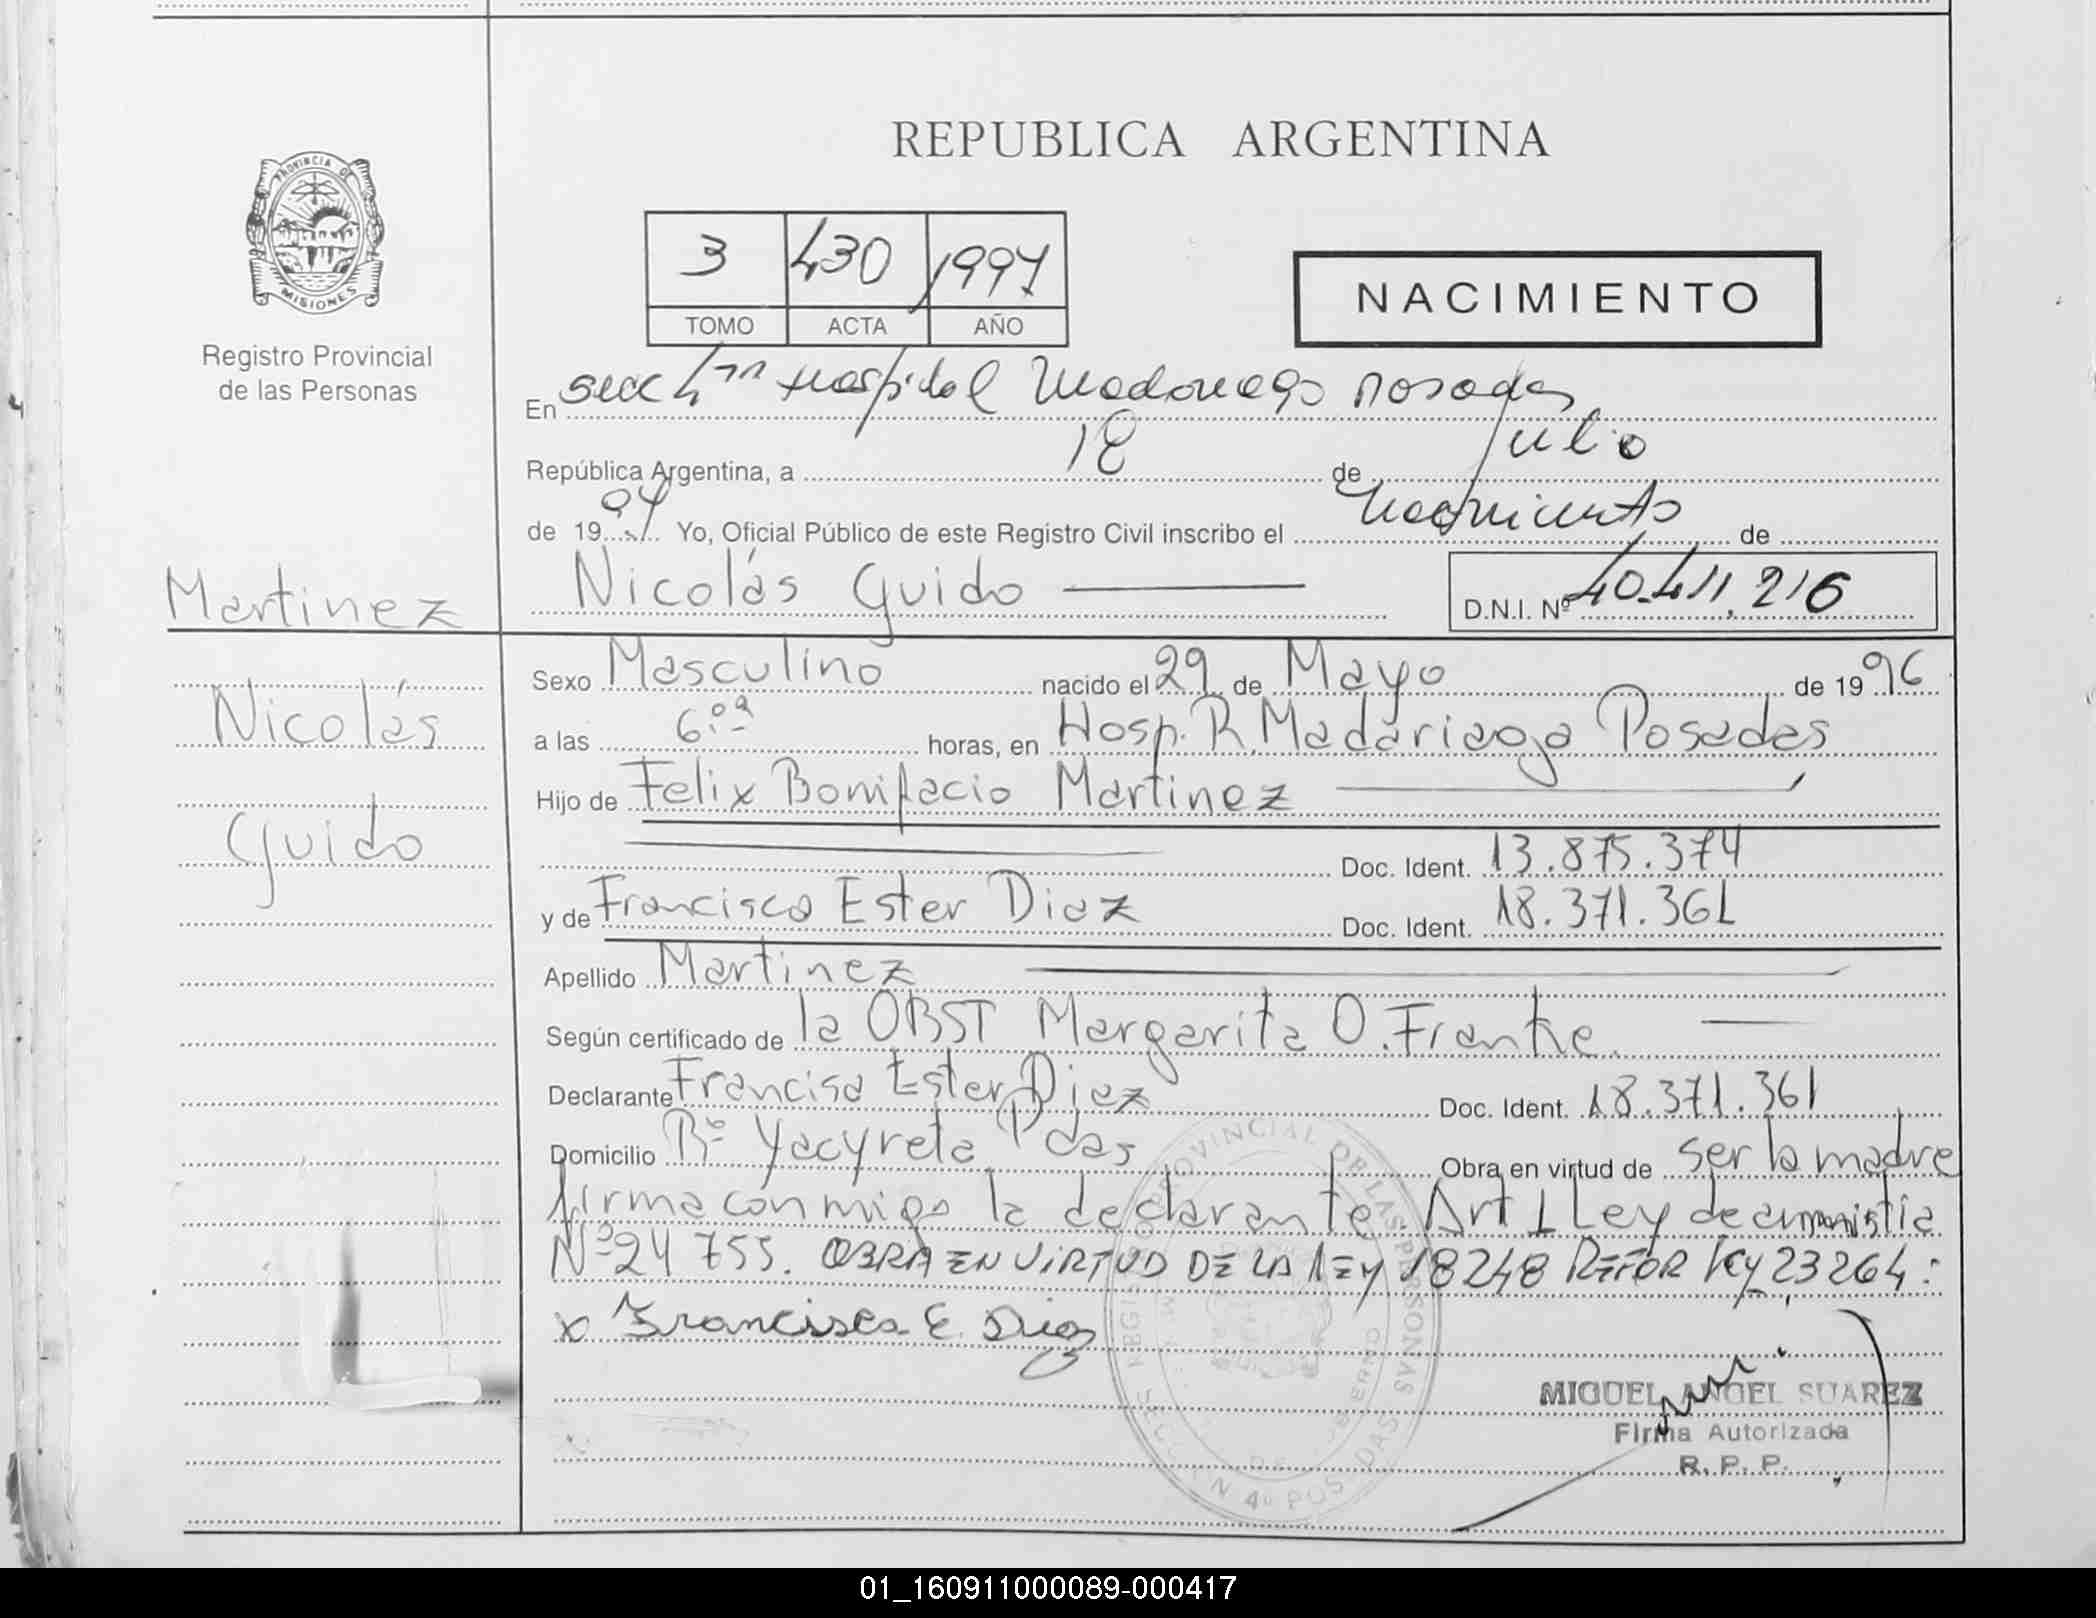 REPUBLICA ARGENTINA
PROVINCIA DE
MISIONES
Registro Provincial
de las Personas
3 430 1997
TOMO ACTA AÑO
NACIMIENTO
En secc 4ta Hospital Madariaga Posadas
República Argentina, a 18 de Julio
de 1997 Yo, Oficial Público de este Registro Civil inscribo el Nacimiento de
Nicolás Guido D.N.I. Nº 40.411.216
Martinez
Nicolás
Guido
Sexo Masculino nacido el 29 de Mayo de 1996
a las 6.oo horas, en Hosp. R. Madariaga Posadas
Hijo de Felix Bonifacio Martinez
Doc. Ident. 13.875.374
y de Francisca Ester Diaz Doc. Ident. 18.371.361
Apellido Martinez
Según certificado de la OBST Margarita O. Franke
Declarante Francisa Ester Diaz Doc. Ident. 18.371.361
Domicilio Bº Yacyreta Pdas Obra en virtud de ser la madre
firma conmigo la declarante. Art 1 Ley de amnistia
Nº 24755. OBRA EN VIRTUD DE LA LEY 18248 REFOR Ley 23264:
x Francisca E. Diaz
REGISTRO PROVINCIAL DE LAS PERSONAS
SECCION 4º POSADAS
MIGUEL ANGEL SUAREZ
Firma Autorizada
R. P. P.
01_160911000089-000417